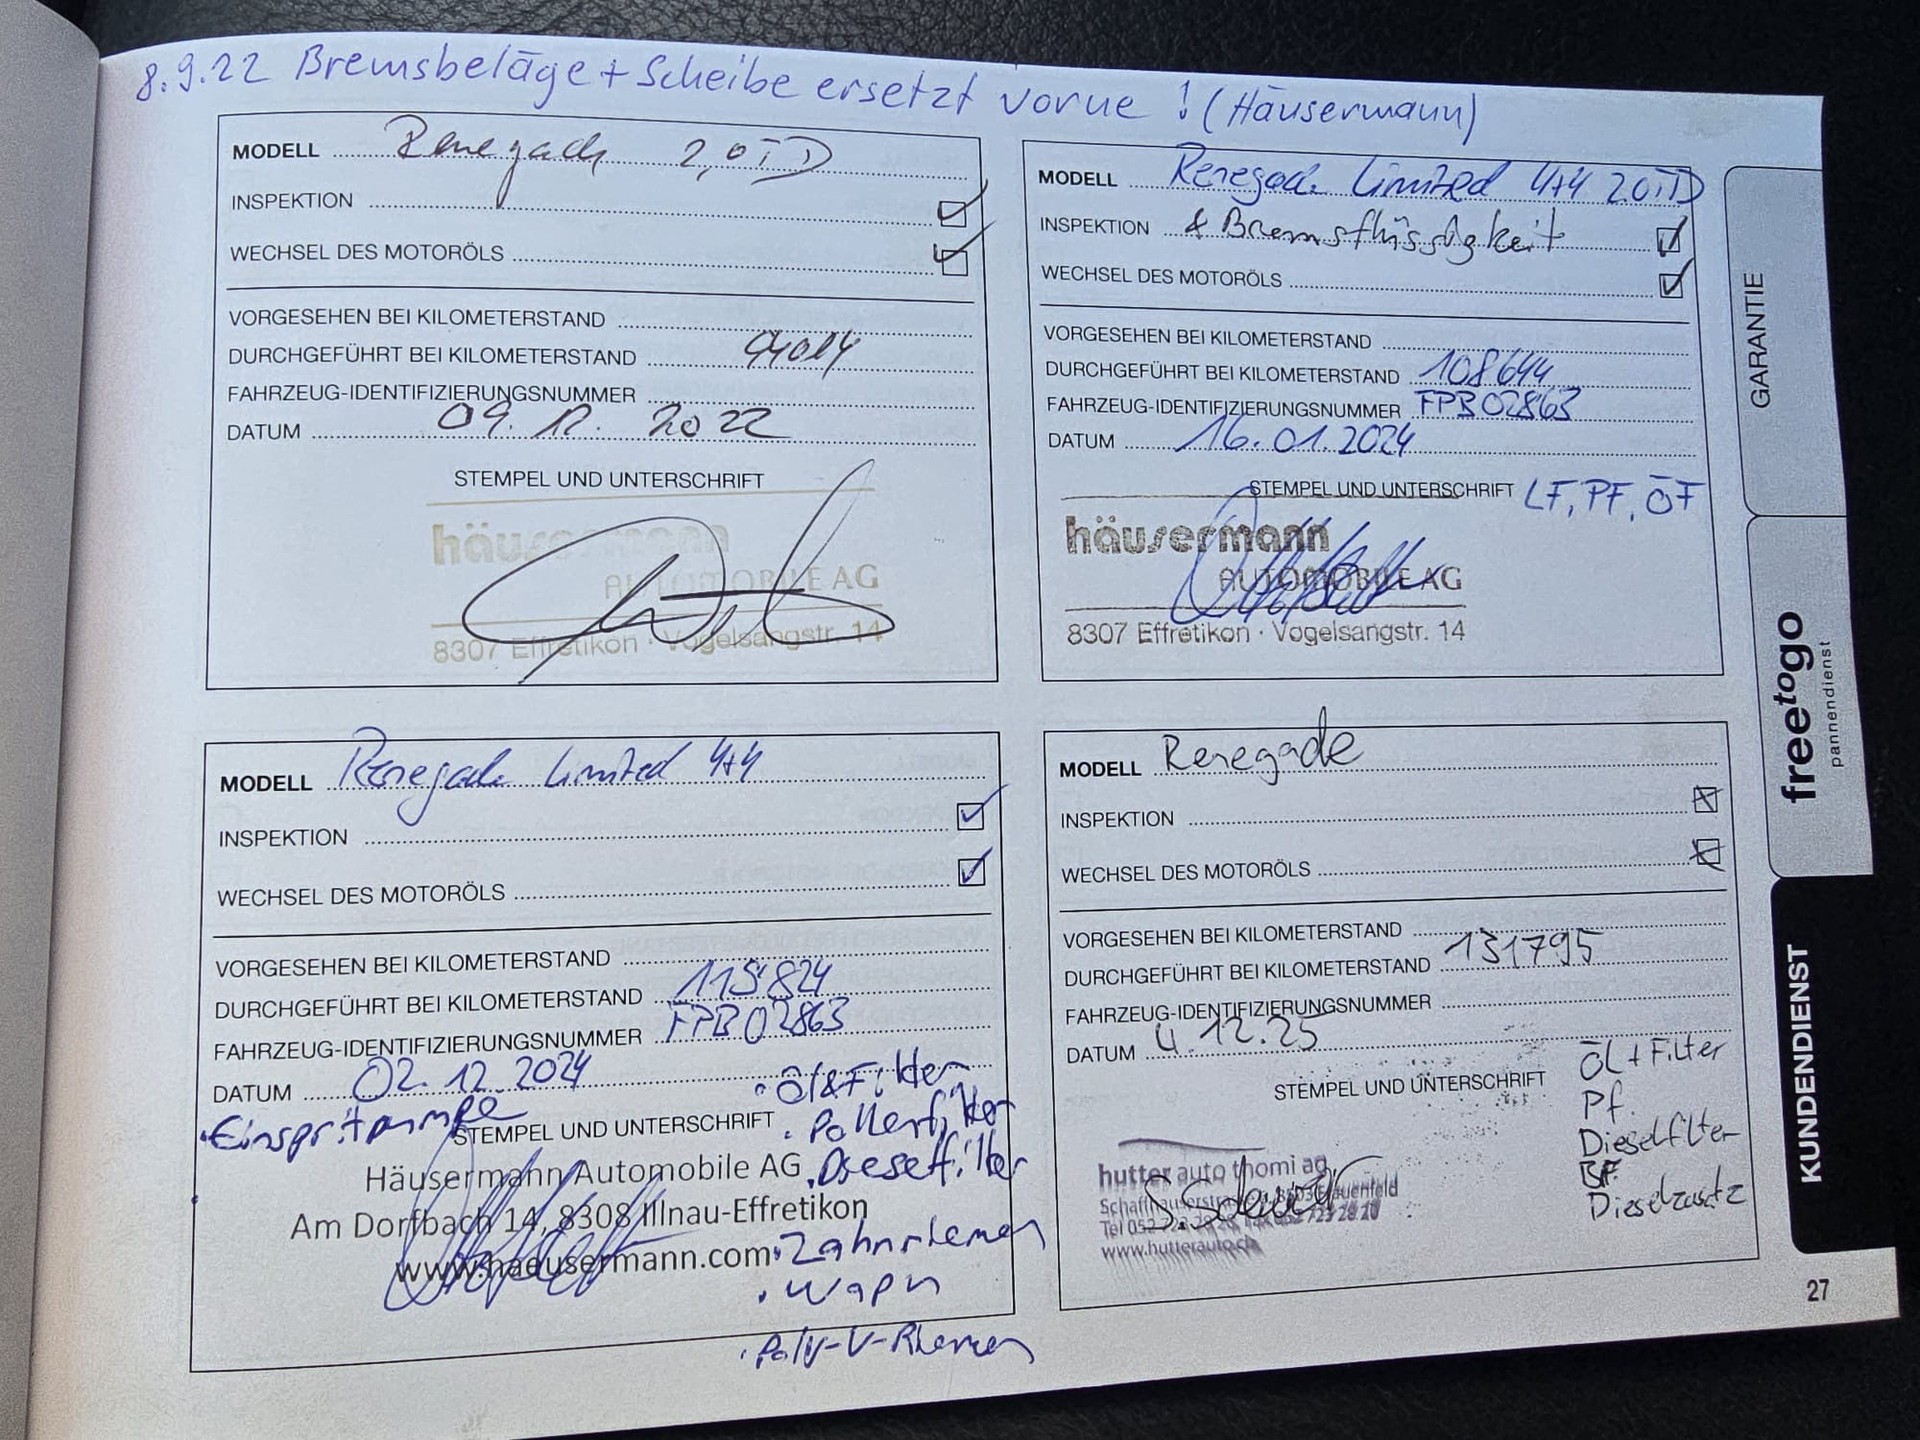 8.9.22 Bremsbeläge + Scheibe ersetzt vorne ! (Häusermann)
MODELL Renegade 2,0TD
INSPEKTION
WECHSEL DES MOTORÖLS
VORGESEHEN BEI KILOMETERSTAND
DURCHGEFÜHRT BEI KILOMETERSTAND 94014
FAHRZEUG-IDENTIFIZIERUNGSNUMMER
DATUM 09. 12. 2022
STEMPEL UND UNTERSCHRIFT
häusermann
AUTOMOBILE AG
8307 Effretikon · Vogelsangstr. 14
MODELL Renegade Limited 4x4 2.0TD
INSPEKTION & Bremsflüssigkeit
WECHSEL DES MOTORÖLS
VORGESEHEN BEI KILOMETERSTAND
DURCHGEFÜHRT BEI KILOMETERSTAND 108644
FAHRZEUG-IDENTIFIZIERUNGSNUMMER FPB02863
DATUM 16.01.2024
STEMPEL UND UNTERSCHRIFT LF, PF, ÖF
häusermann
AUTOMOBILE AG
8307 Effretikon · Vogelsangstr. 14
MODELL Renegade Limited 4x4
INSPEKTION
WECHSEL DES MOTORÖLS
VORGESEHEN BEI KILOMETERSTAND
DURCHGEFÜHRT BEI KILOMETERSTAND 115824
FAHRZEUG-IDENTIFIZIERUNGSNUMMER FPB02863
DATUM 02.12.2024 · Öl & Filter
· Einspritpumpe
STEMPEL UND UNTERSCHRIFT · Pollenfilter
Häusermann Automobile AG · Dieselfilter
Am Dorfbach 14, 8308 Illnau-Effretikon
www.haeusermann.com · Zahnriemen
· Wapu
· Poly-V-Riemen
MODELL Renegade
INSPEKTION
WECHSEL DES MOTORÖLS
VORGESEHEN BEI KILOMETERSTAND
DURCHGEFÜHRT BEI KILOMETERSTAND 131795
FAHRZEUG-IDENTIFIZIERUNGSNUMMER
DATUM 4.12.25
STEMPEL UND UNTERSCHRIFT
Öl + Filter
Pf.
Dieselfilter
BF.
Dieselzusatz
hutter auto thomi ag
www.hutterauto.ch
GARANTIE
freetogo
pannendienst
KUNDENDIENST
27